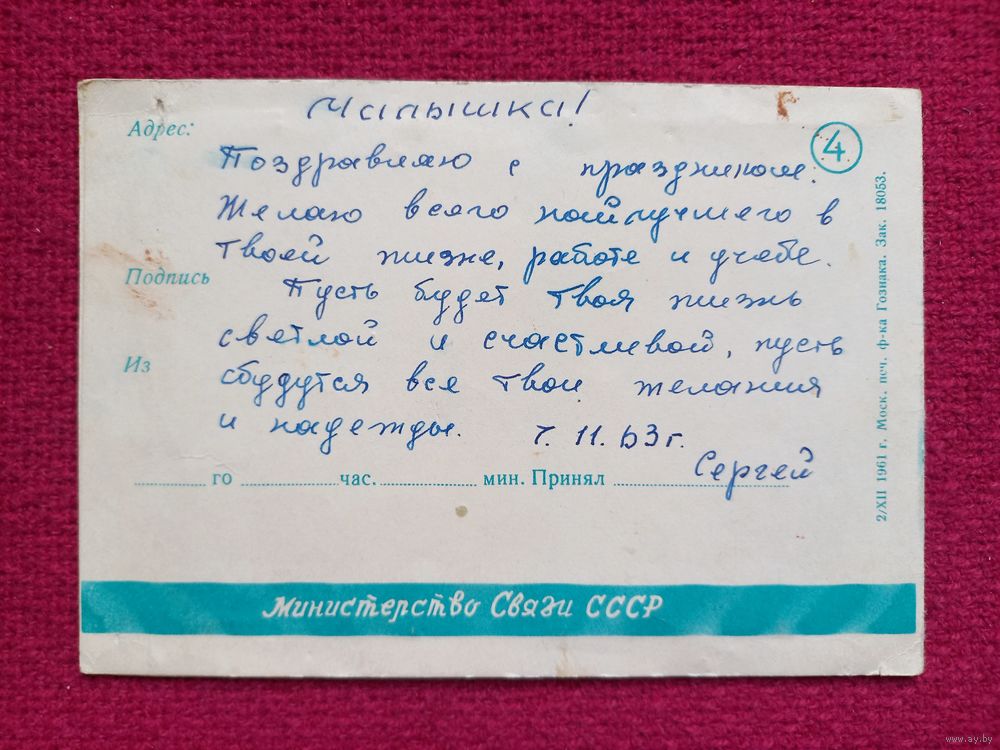 Малышка!
Адрес:
4
Поздравляю с праздником.
Желаю всего наилучшего в
твоей жизне, работе и учебе.
Подпись
Пусть будет твоя жизнь
светлой и счастливой, пусть
Из
сбудутся все твои желания
и надежды. 7. 11. 63 г.
Сергей
го час. мин. Принял
2/XII 1961 г. Моск. печ. ф-ка Гознака. Зак. 18053.
Министерство Связи СССР
www.ay.by